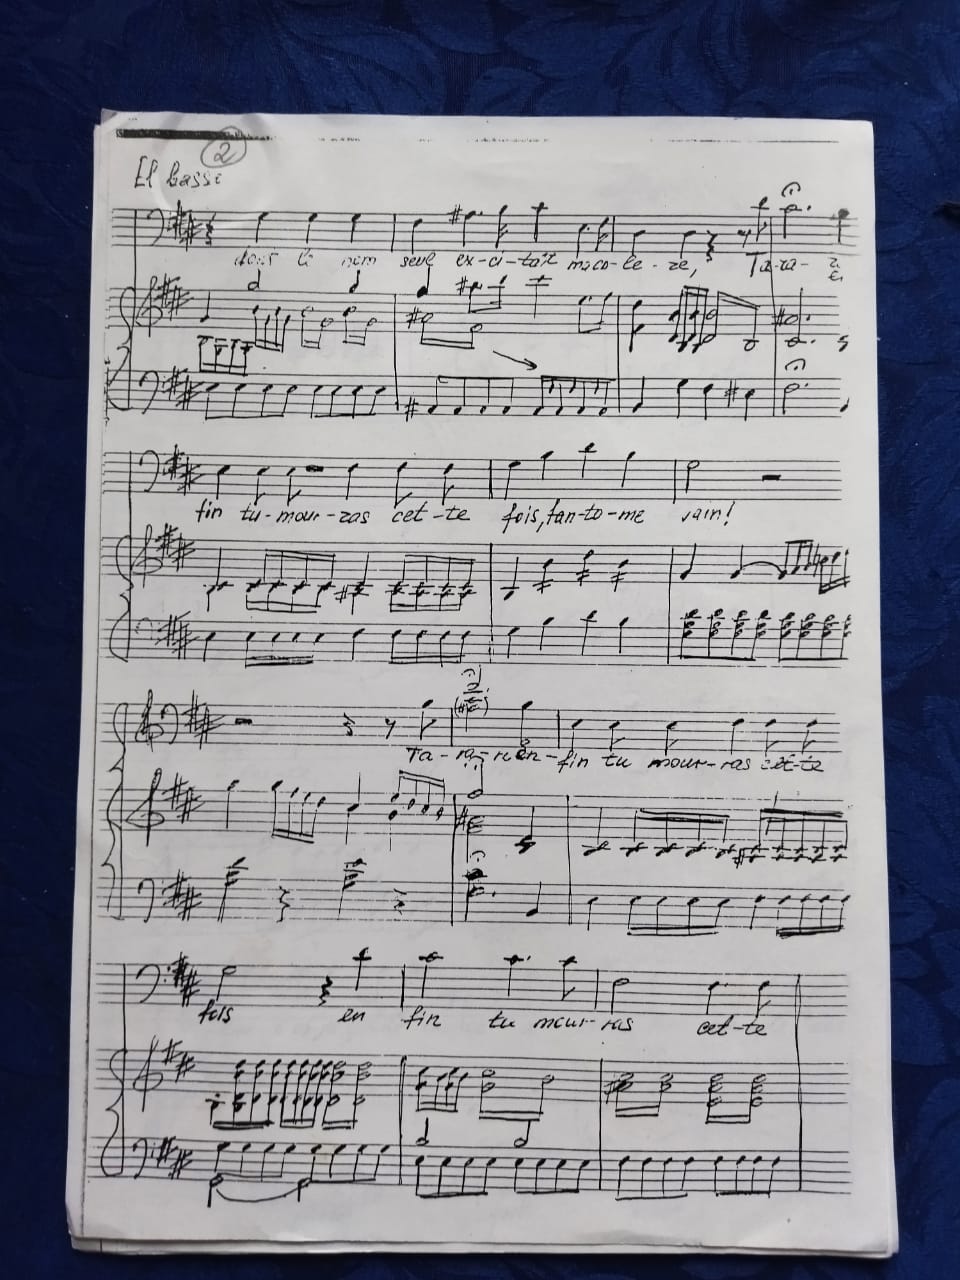 2
El basse
dont le nom seul ex-ci-tait ma co-le-re, Ta-ra-
fin tu-mour-ras cet-te fois, fan-to-me vain!
Ta-ra-re en-fin tu mour-ras cet-te
fois en fin tu mour-ras cet-te